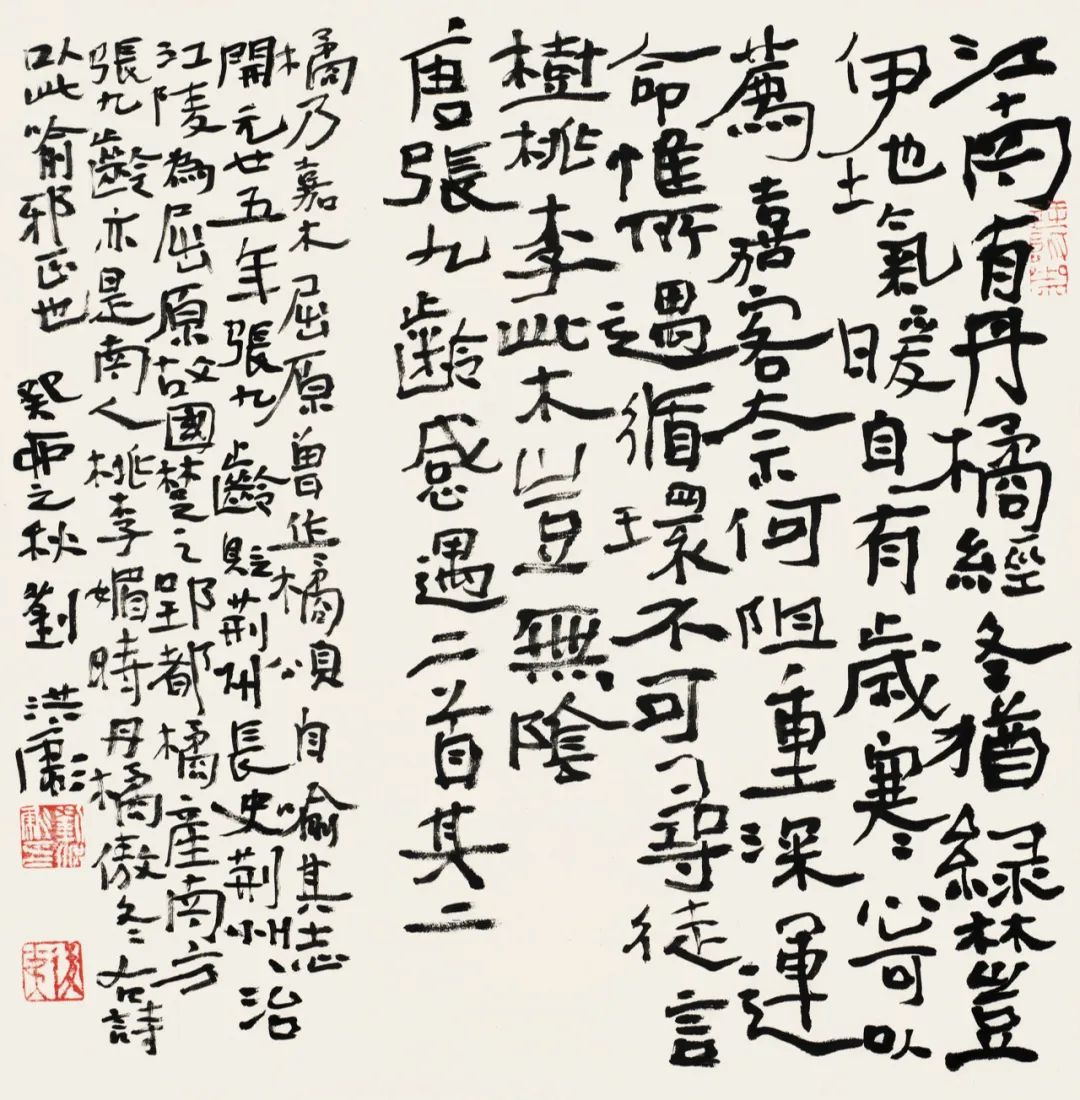 江南有丹橘經冬猶綠林豈
伊地氣暖自有歲寒心可以
薦嘉客奈何阻重深運
命惟所遇循環不可尋徒言
樹桃李此木豈無陰
唐張九齡感遇二首其二
橘乃嘉木屈原曾作橘頌自喻其志
開元廿五年張九齡貶荊州長史荊州治
江陵為屈原故國楚之郢都橘產南方
張九齡亦是南人桃李媚時丹橘傲冬右詩
以此喻邪正也 癸卯之秋 劉洪彪